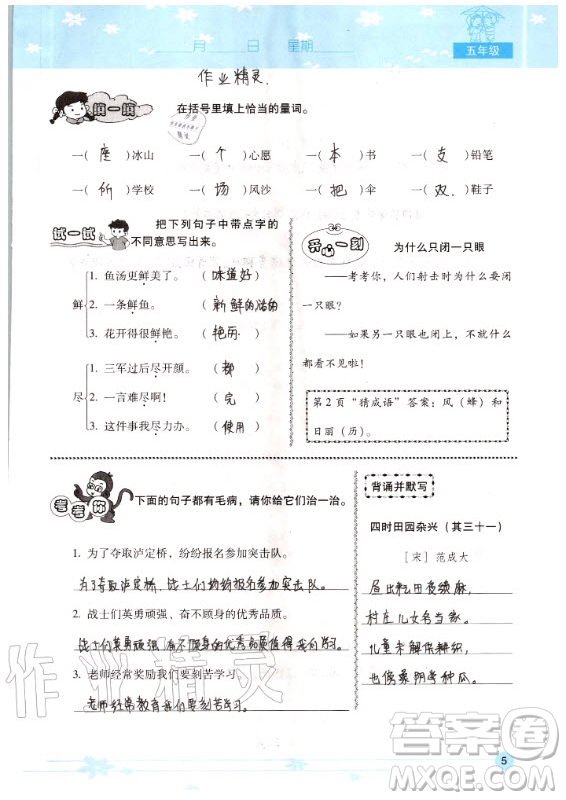 月 日 星期
五年级
作业精灵
填一填 在括号里填上恰当的量词。
一(座)冰山 一(个)心愿 一(本)书 一(支)铅笔
一(所)学校 一(场)风沙 一(把)伞 一(双)鞋子
试一试 把下列句子中带点字的
不同意思写出来。
鲜
1. 鱼汤更鲜美了。 (味道好)
2. 一条鲜鱼。 (新鲜的活的)
3. 花开得很鲜艳。 (艳丽)
尽
1. 三军过后尽开颜。 (都)
2. 一言难尽! (完)
3. 这件事我尽力办。 (使用)
开心一刻 为什么只闭一只眼
——考考你,人们射击时为什么要闭
一只眼?
——如果另一只眼也闭上,不就什么
都看不见啦!
第2页“猜成语”答案:风(蜂)和
日丽(历)。
考考你 下面的句子都有毛病,请你给它们治一治。
1. 为了夺取泸定桥,纷纷报名参加突击队。
为了夺取泸定桥,战士们纷纷报名参加突击队
2. 战士们英勇顽强、奋不顾身的优秀品质。
战士们英勇顽强、奋不顾身的优秀品质值得我们学习。
3. 老师经常奖励我们要刻苦学习。
老师经常教育我们要刻苦学习。
背诵并默写
四时田园杂兴(其三十一)
[宋] 范成大
昼出耘田夜绩麻,
村庄儿女各当家。
儿童未解供耕织,
也傍桑阴学种瓜。
作业精灵
答案圈
MXQE.COM
5